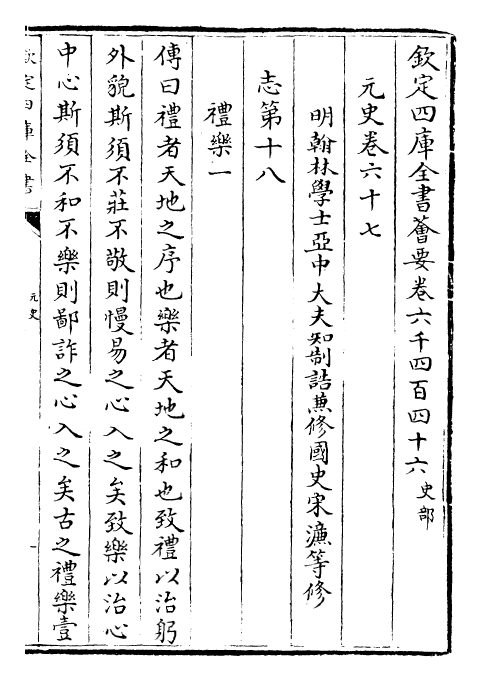 欽定四庫全書薈要卷六千四百四十六史部
元史卷六十七
明翰林學士亞中大夫知制誥兼修國史宋濂等修
志第十八
禮樂一
傳曰禮者天地之序也樂者天地之和也致禮以治躬
外貌斯須不莊不敬則慢易之心入之矣致樂以治心
中心斯須不和不樂則鄙詐之心入之矣古之禮樂壹
欽定四庫全書
元史
一